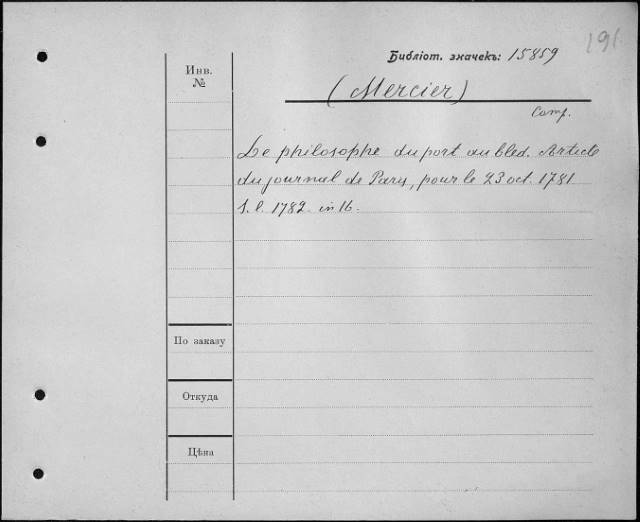 191
Библіот. значекъ: 15859
Инв.
№
(Mercier)
Comp.
Le philosophe du port au bled. Article
du journal de Paris, pour le 23 oct. 1781
S. l. 1782. in 16.
По заказу
Откуда
Цѣна